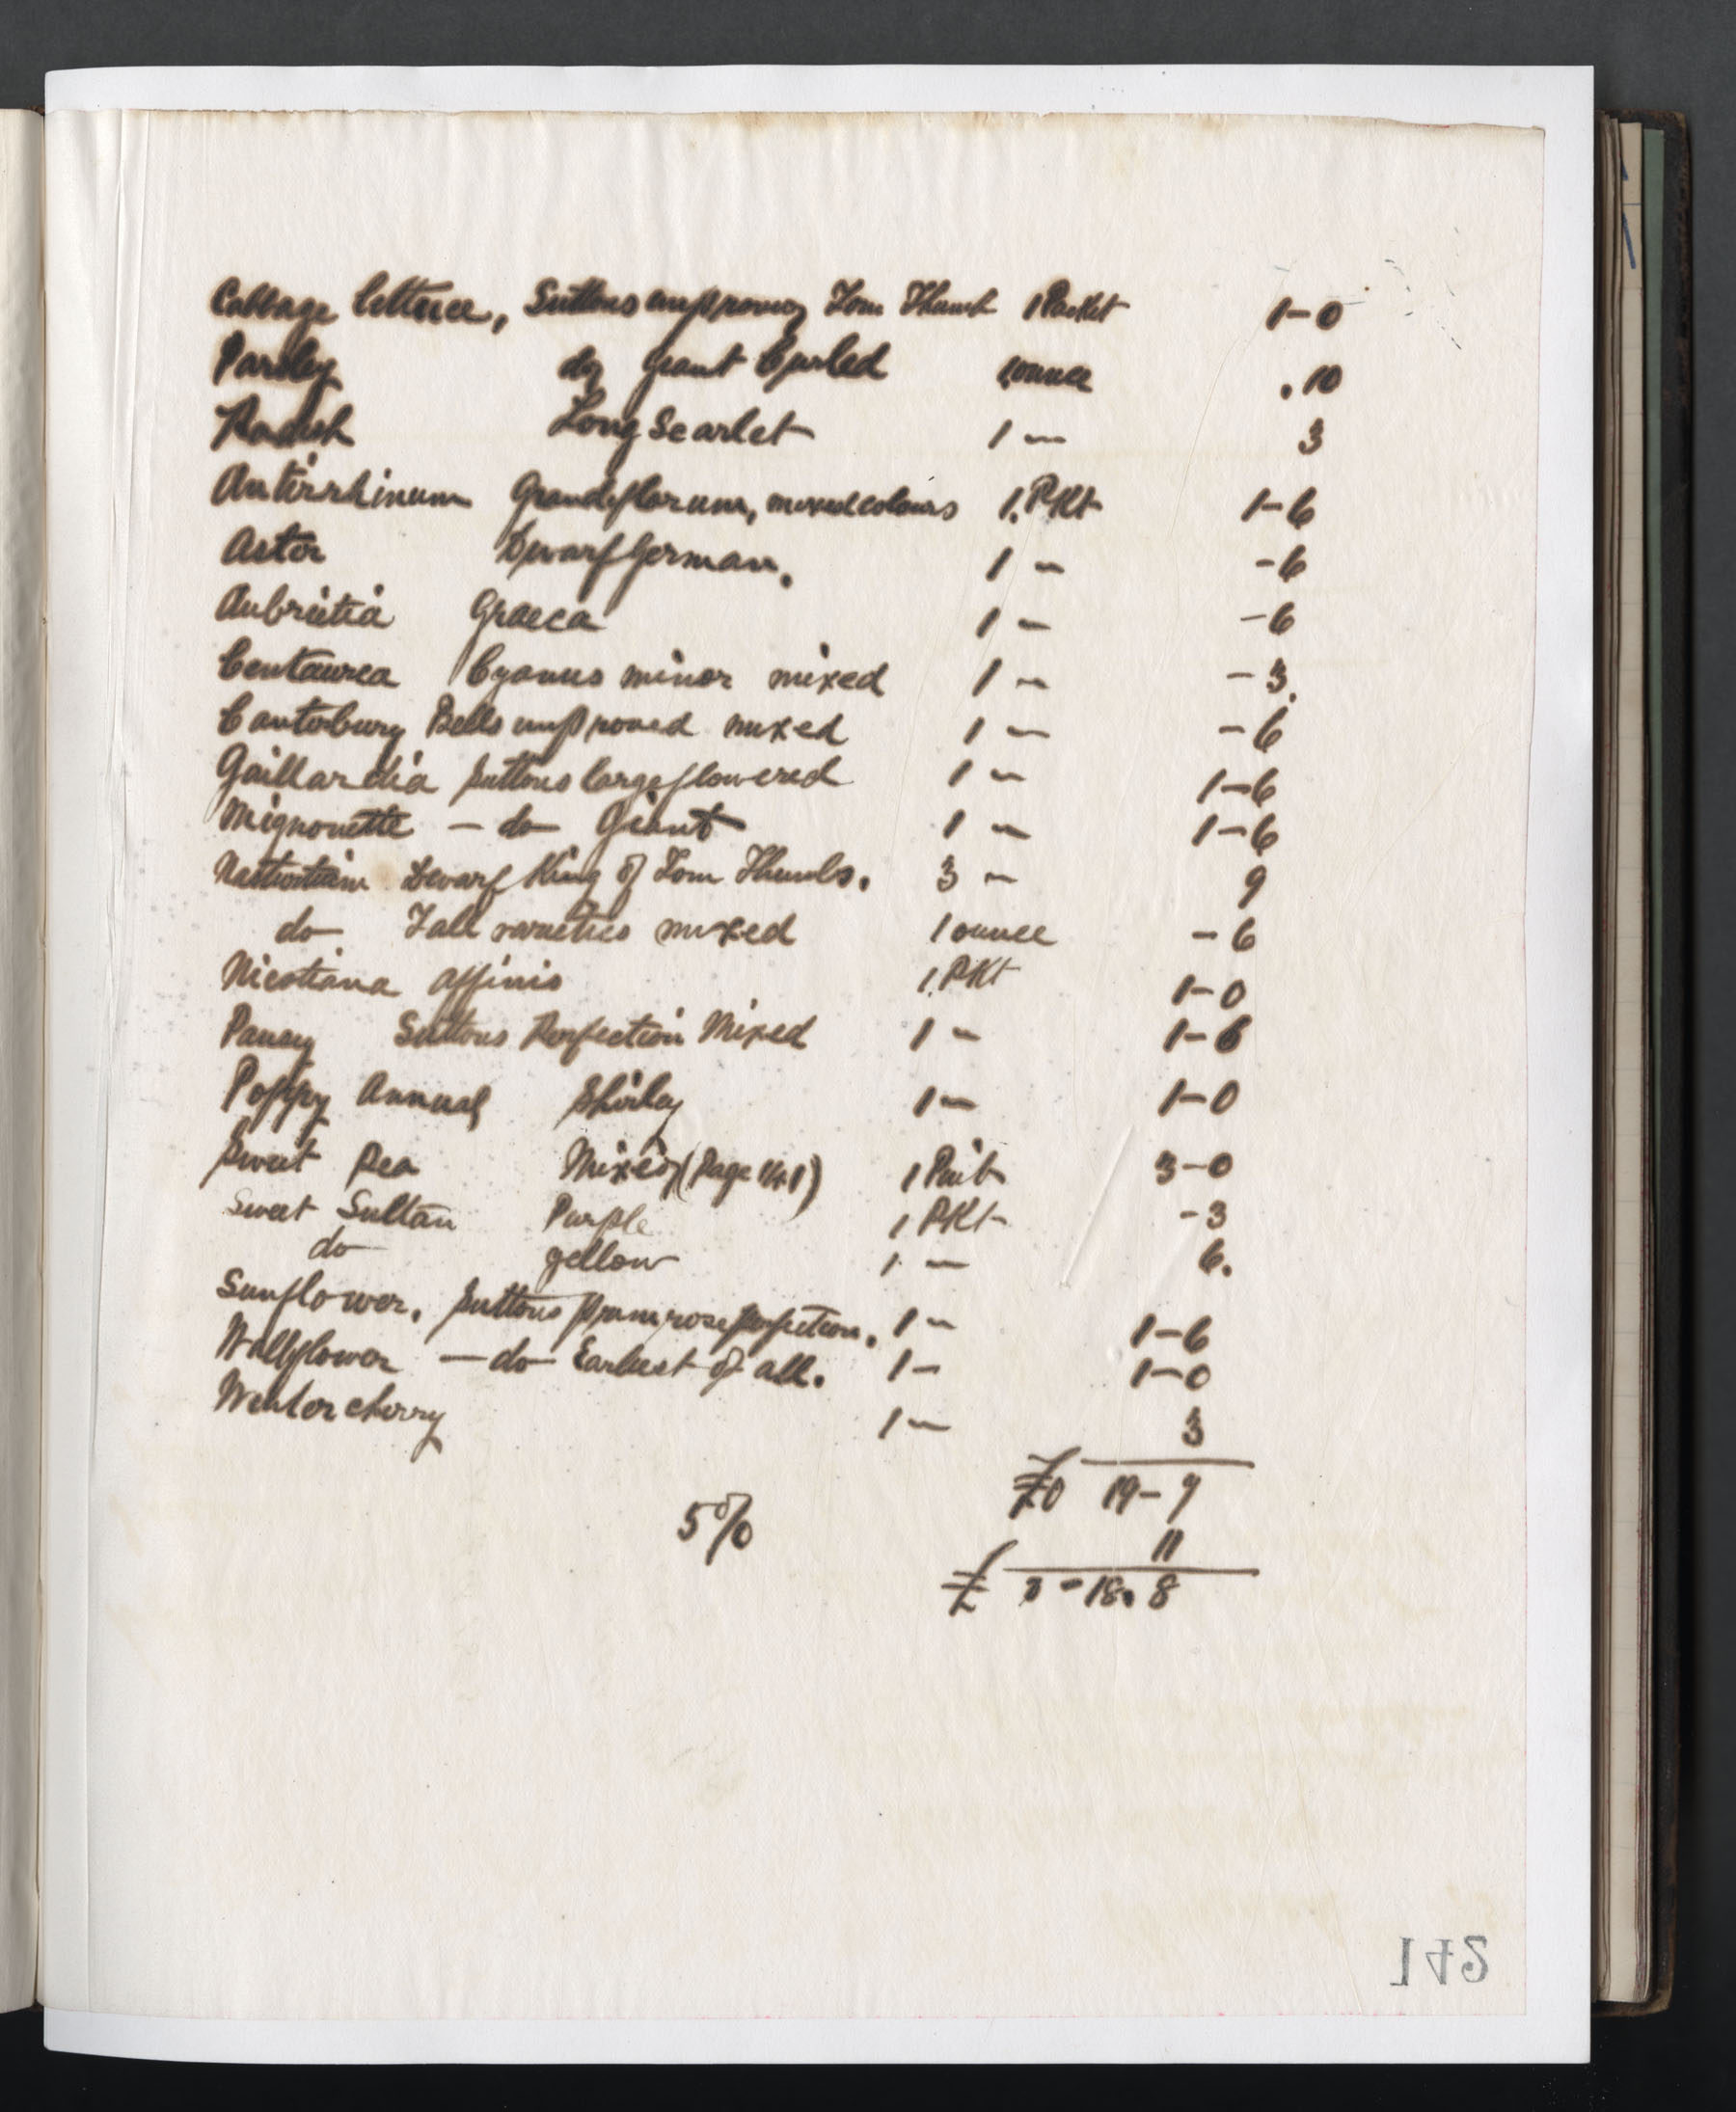 Cabbage lettuce, Suttons improving Tom Thumb 1 Packet 1-0
Parsley do Giant Curled 1 ounce .10
Radish Long Scarlet 1 — 3
Antirrhinum Grandiflorum, mixed colours 1. PKt 1-6
Aster Dwarf German. 1 — -6
Aubrietia Graeca 1 — -6
Centaurea Cyanus minor mixed 1 — -3.
Canterbury Bells improved mixed 1 — -6
Gaillardia Suttons large flowered 1 — 1-6
Mignonette — do Giant 1 — 1-6
Nasturtium Dwarf King of Tom Thumbs. 3 — 9
do Tall varieties mixed 1 ounce -6
Nicotiana affinis 1. PKt 1-0
Pansy Suttons Perfection Mixed 1 — 1-6
Poppy Annual Shirley 1 — 1-0
Sweet Pea Mixed (Page 141) 1 Paib 3-0
Sweet Sultan Purple 1 PKt -3
do yellow 1 — 6.
Sunflower. Suttons Primrose perfection. 1 — 1-6
Wallflower — do Earliest of all. 1 — 1-0
Winter cherry 1 — 3
£0 19-7
5% 11
£ 0-18.8
142